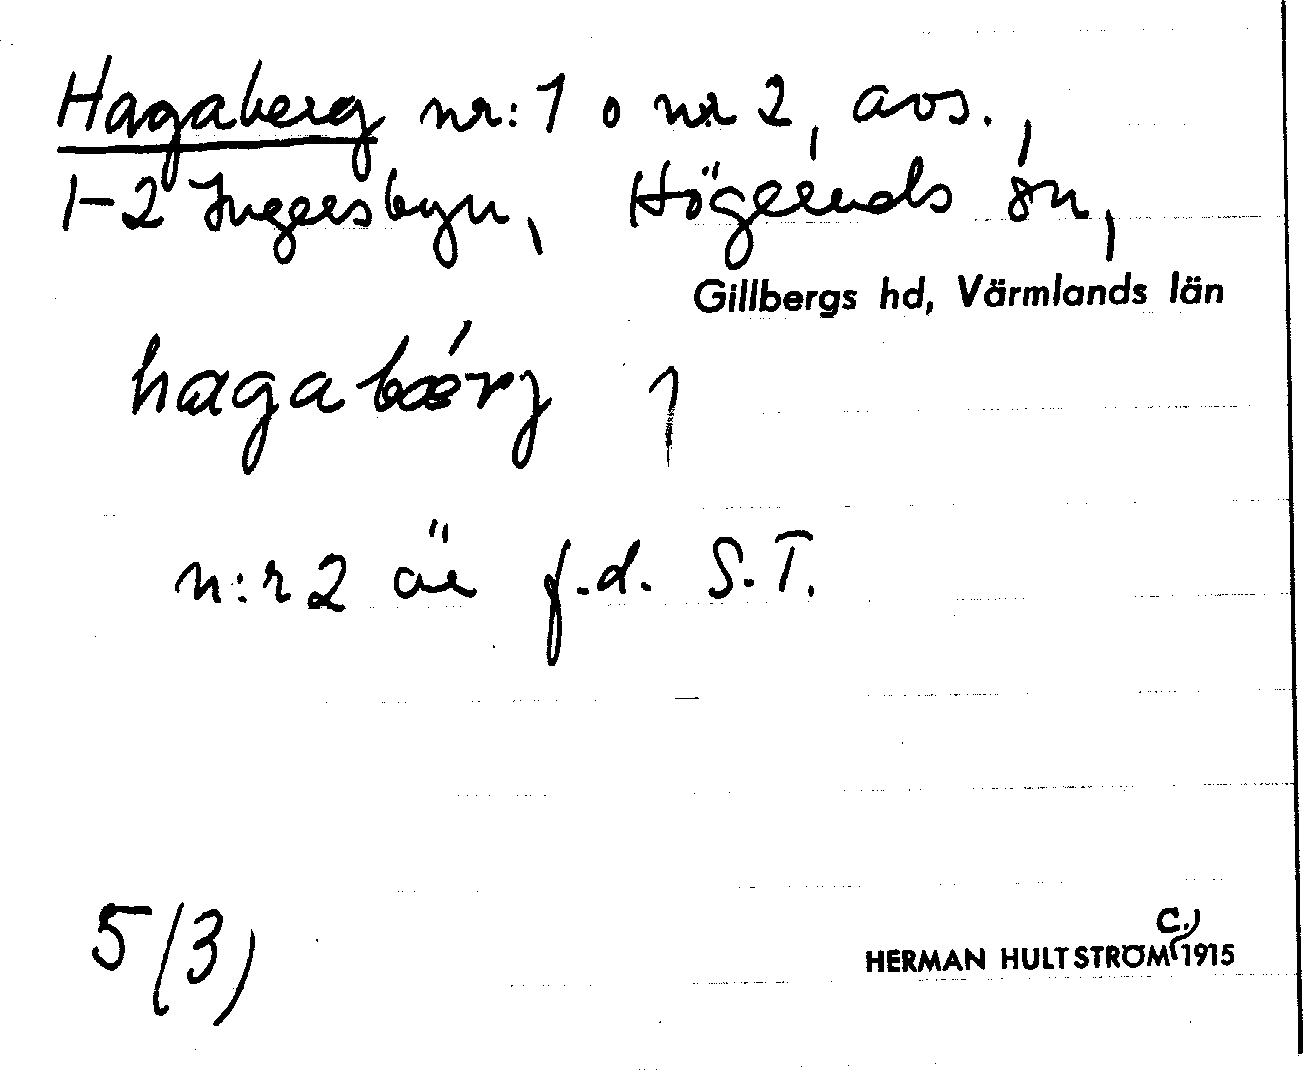 Hagaberg nr: 1 o nr 2, avs.,
1-2 Ingersbyn, Högeruds sn,
Gillbergs hd, Värmlands län
hagabǽrj
n:r 2 är f.d. S.T.
5 (3)
c.
HERMAN HULTSTRÖM 1915